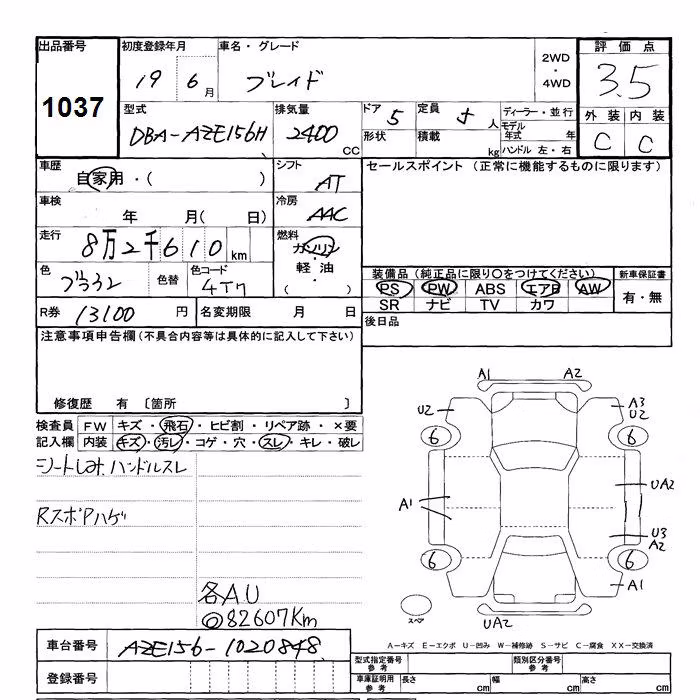 出品番号 初度登録年月 車名・グレード 2WD・4WD 評価点
1037 19 6月 ブレイド 3.5
型式 排気量 ドア 5 定員 5人 ディーラー・並行 外装 内装
DBA-AZE156H 2400CC 形状 積載 kg モデル年式 年 C C
ハンドル 左・右
車歴 自家用・( ) シフト AT セールスポイント (正常に機能するものに限ります)
車検 年 月( 日) 冷房 AAC
走行 8万2千610km 燃料 ガソリン・軽油・( )
色 ブラウン 色替 色コード 4T7 装備品 (純正品に限り○をつけてください) 新車保証書
PS PW ABS エアB AW 有・無
SR ナビ TV カワ
R券 13100円 名変期限 月 日 後日品
注意事項申告欄 (不具合内容等は具体的に記入して下さい)
修復歴 有 〔箇所 〕
検査員記入欄 FW キズ・飛石・ヒビ割・リペア跡・×要
内装 キズ・汚レ・コゲ・穴・スレ・キレ・破レ
シートしみ、ハンドルスレ
RスポPハゲ
各AU
◎82607Km
A1 A2
U2 A3 U2
6 6
A1 UA2
U3 A2
6 6
A1
スペア UA2
A-キズ E-エクボ U-凹み W-補修跡 S-サビ C-腐食 XX-交換済
車台番号 AZE156-1020848
登録番号
型式指定番号 参考 類別区分番号 参考
車庫証明用 参考 長さ cm 幅 cm 高さ cm